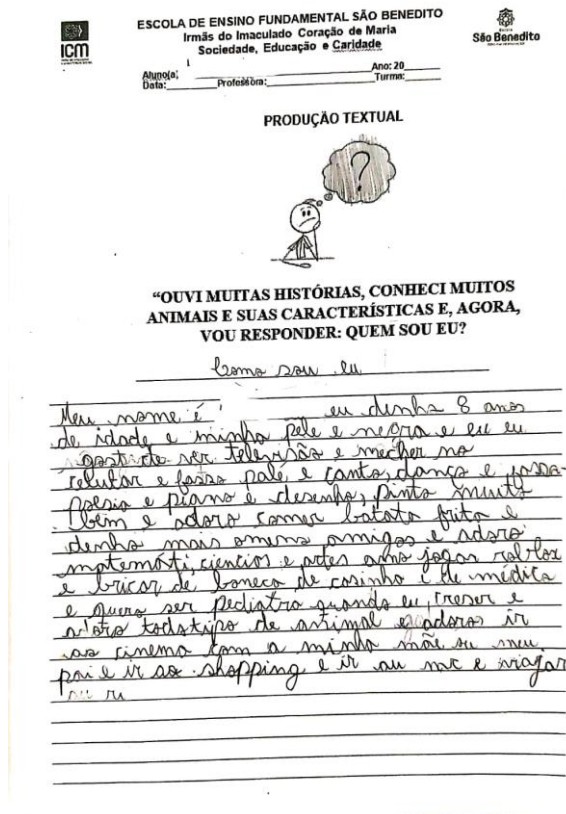 ESCOLA DE ENSINO FUNDAMENTAL SÃO BENEDITO
Irmãs do Imaculado Coração de Maria
Sociedade, Educação e Caridade
ICM
São Benedito
Aluno(a; Ano: 20
Data: Professora: Turma:
PRODUÇÃO TEXTUAL
?
“OUVI MUITAS HISTÓRIAS, CONHECI MUITOS
ANIMAIS E SUAS CARACTERÍSTICAS E, AGORA,
VOU RESPONDER: QUEM SOU EU?
Como sou eu
Meu nome é eu denha 8 anos
de idade e minha pele e negra e eu eu
gosti de ver televisão e mecher no
celular e fasso palé e canto, danço e fasso
poesia e piano e desenho, pinto muito
bem e adoro comer batata frita e
denho mais omens amigos e adoro
matemáti, ciencios e artes amo jogar roblox
e bricar de boneca, de casinha i de médica
e quero ser pediatra quando eu, creser e
adoro todo tipo de animal e adoro ir
ao cinema com a minha mãe ou meu
pai e ir ao shopping e ir au mc e viajar